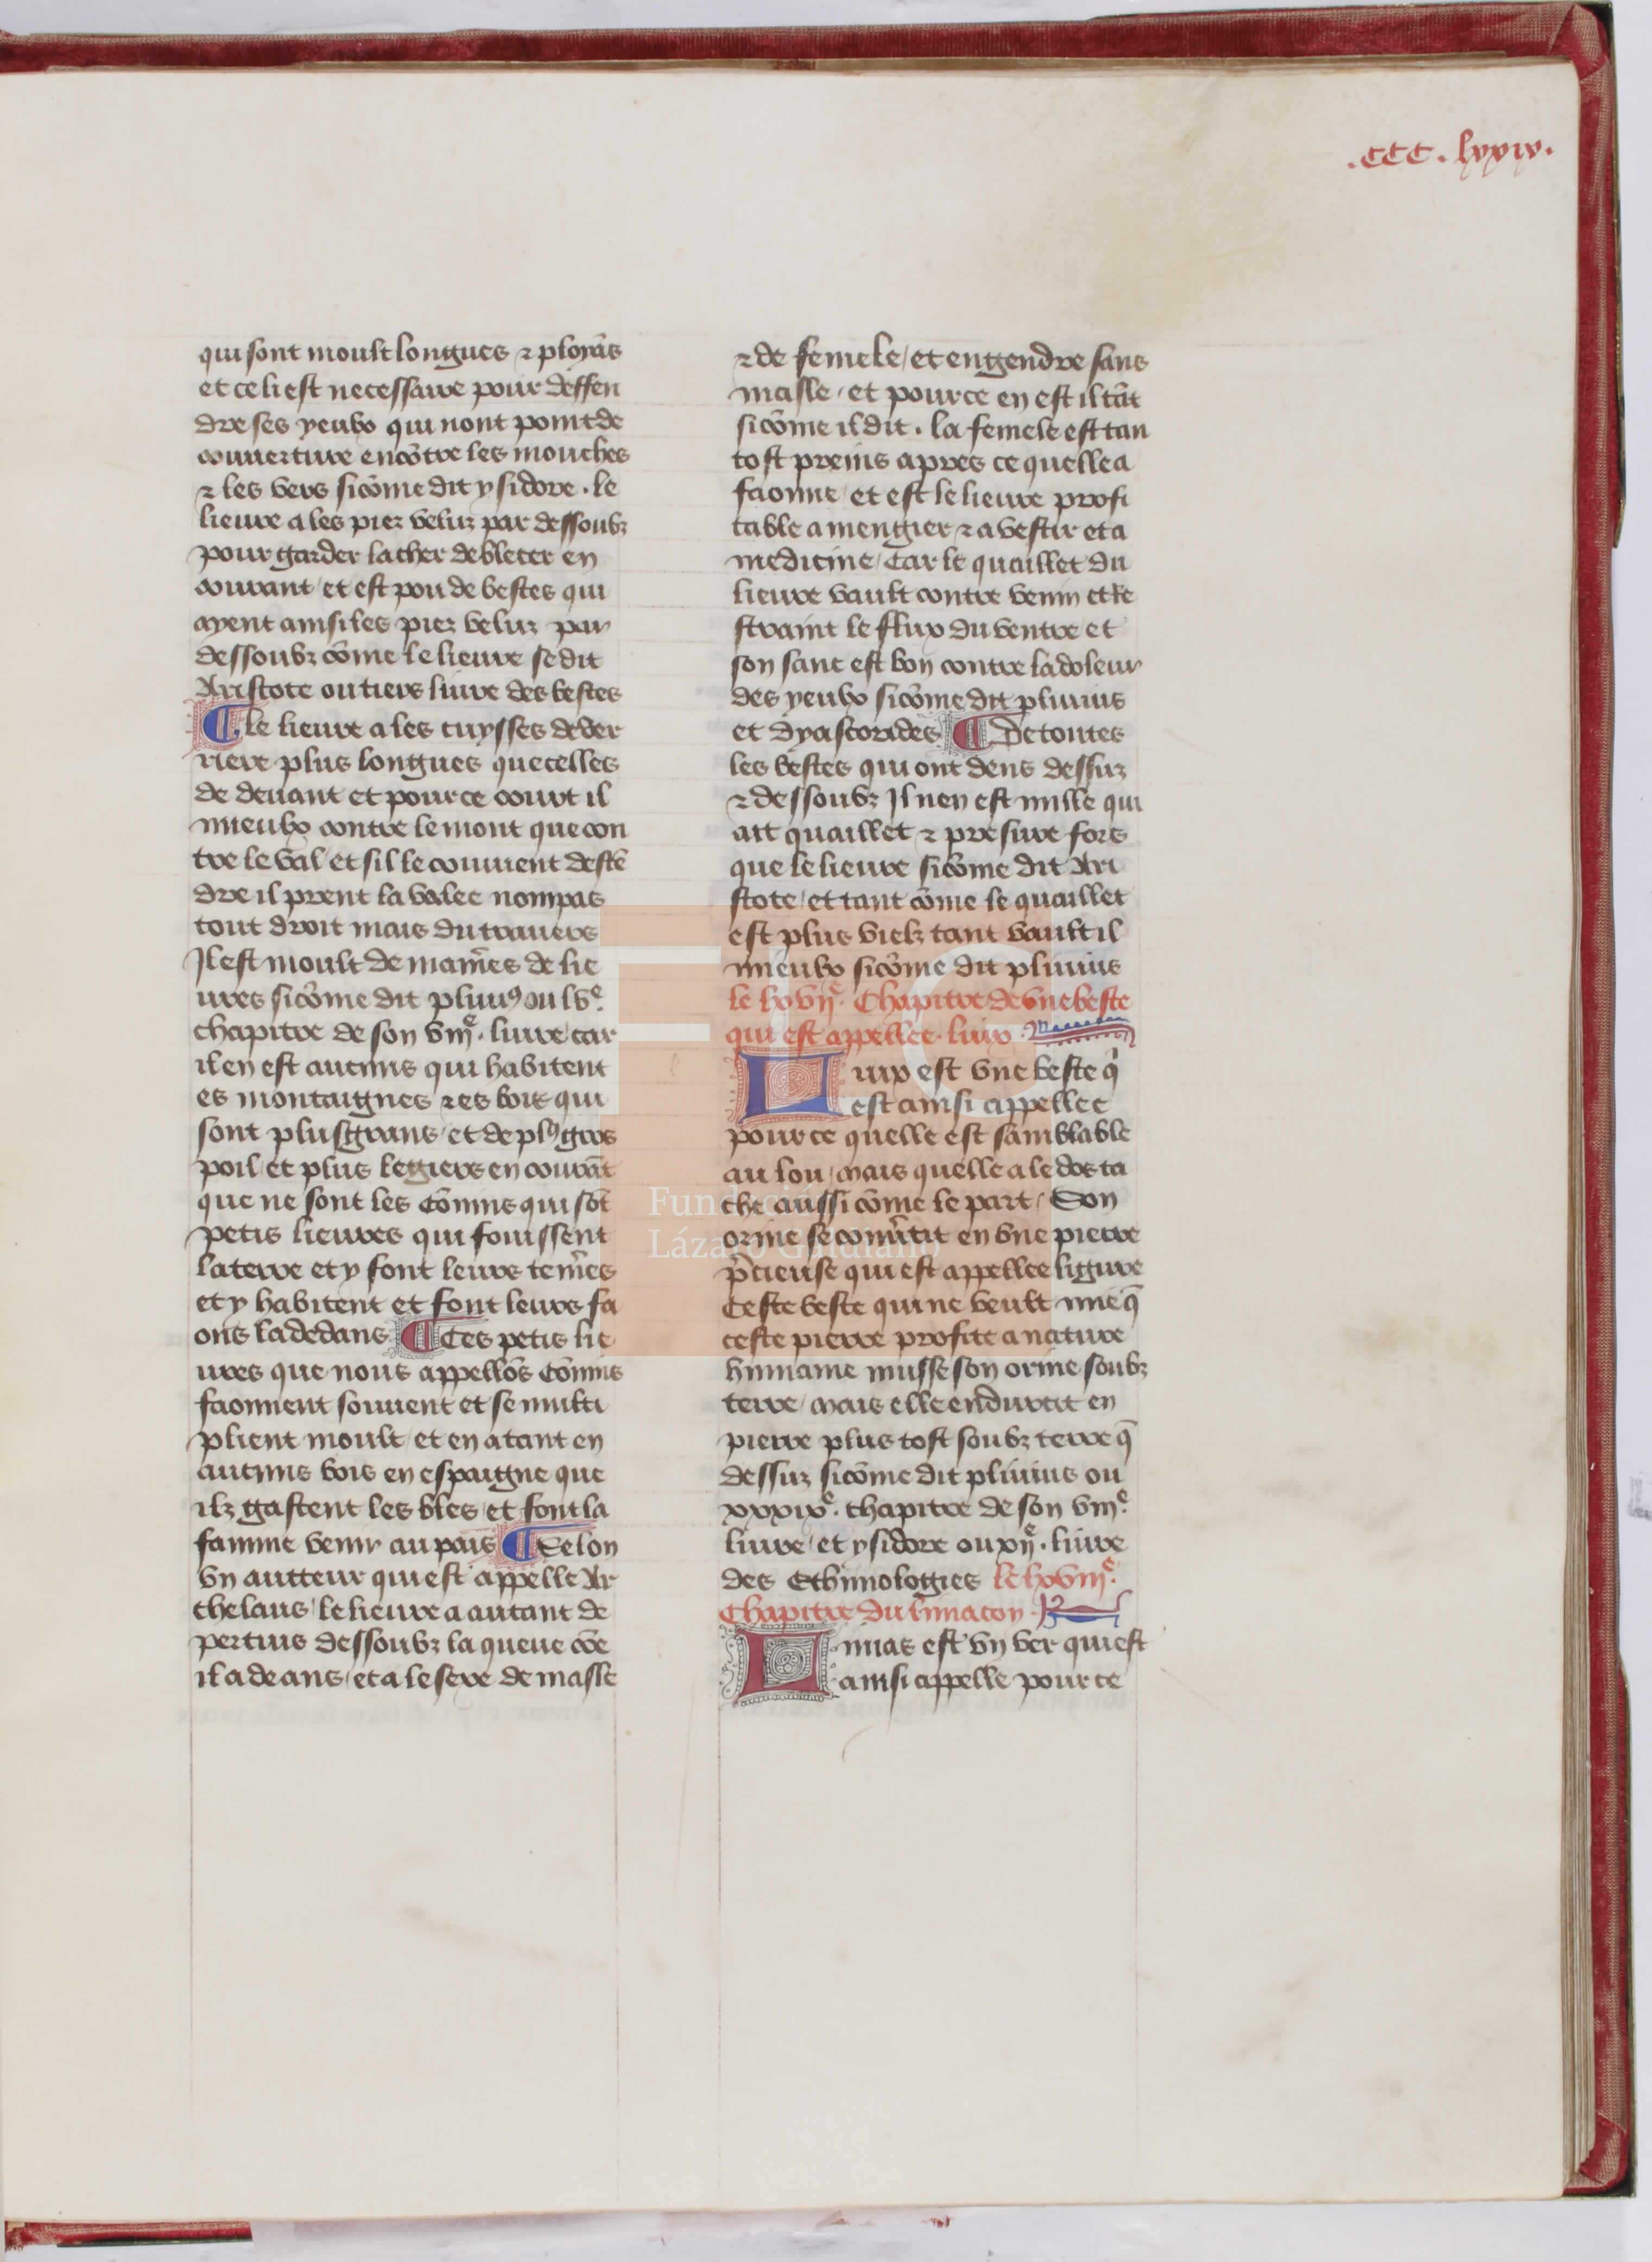 .CCC. lxxix.
qui sont moult longues ⁊ ployãs
et ce li est necessaire pour deffen
dre ses yeulx qui nont point de
couuerture encõtre les mouches
⁊ les vers sicõme dit ysidore. le
lieure a les piez veluz par dessoubz
pour garder la cher de blecer en
courant / et est pou de bestes qui
ayent ainsi les piez veluz par
dessoubz cõme le lieure se dit
Aristote ou tiers liure des bestes
¶ le lieure a les cuysses de der
riere plus longues que celles
de deuant et pource court il
mieulx contre le mont que con
tre le val et sil le conuient descẽ
dre il prent la valee nompas
tout droit mais du trauers
Il est moult de manr̃es de lie
ures sicõme dit pliniꝰ ou lvᵉ.
chapitre de son viijᵉ. liure / car
il en est aucuns qui habitent
es montaignes ⁊ es bois qui
sont plus grans / et de plꝰ gros
poil / et plus legiers en courãt
que ne sont les cõnins qui sõt
petis lieures qui fouissent
la terre et y font leurs tem̃es
et y habitent et font leurs fa
ons la dedans ¶ Ces petis lie
ures que nous appellõs cõnins
faonnent souuent et se multi
plient moult / et en a tant en
aucuns bois en espaigne que
ilz gastent les bles / et font la
famine venir au pais ¶ Selon
vn autteur qui est appelle Ar
chelaus / le lieure a autant de
pertuis dessoubz la queue cõe
il a de ans / et a le sexe de masle
⁊ de femele / et engendre sans
masle / et pource en est il tãt
sicõme il dit. la femele est tan
tost preins apres ce quelle a
faonne / et est le lieure profi
table a mengier ⁊ a vestir et a
medicine / Car le quaillet du
lieure vault contre venin et re
straint le flux du ventre et
son sanc est bon contre la doleur
des yeulx sicõme dit plinius
et dyascorides ¶ De toutes
les bestes qui ont dens dessuz
⁊ dessoubz Il nen est nulle qui
ait quaillet ⁊ presure fors
que le lieure sicõme dit Ari
stote / et tant cõme le quaillet
est plus vielz tant vault il
mieulx sicõme dit plinius
le lxvijᵉ. Chapitre de vne beste
qui est appellee. linx.
Linx est vne beste qͥ
est ainsi appellee
pource quelle est samblable
au lou / mais quelle a le dos ta
che aussi cõme le part / Son
orine se conũtit en vne pierre
p̃cieuse qui est appellee ligure
Ceste beste qui ne veult mie q̃
ceste pierre profite a nature
humaine musse son orine soubz
terre / mais elle endurcit en
pierre plus tost soubz terre q̃
dessuz sicõme dit plinius ou
xxxixᵉ. chapitre de son viijᵉ.
liure / et ysidore ou xijᵉ. liure
des Ethimologies le lxviijᵉ.
Chapitre du limacon.
Limas est vn ver qui est
ainsi appelle pource
Fundación
Lázaro Galdiano